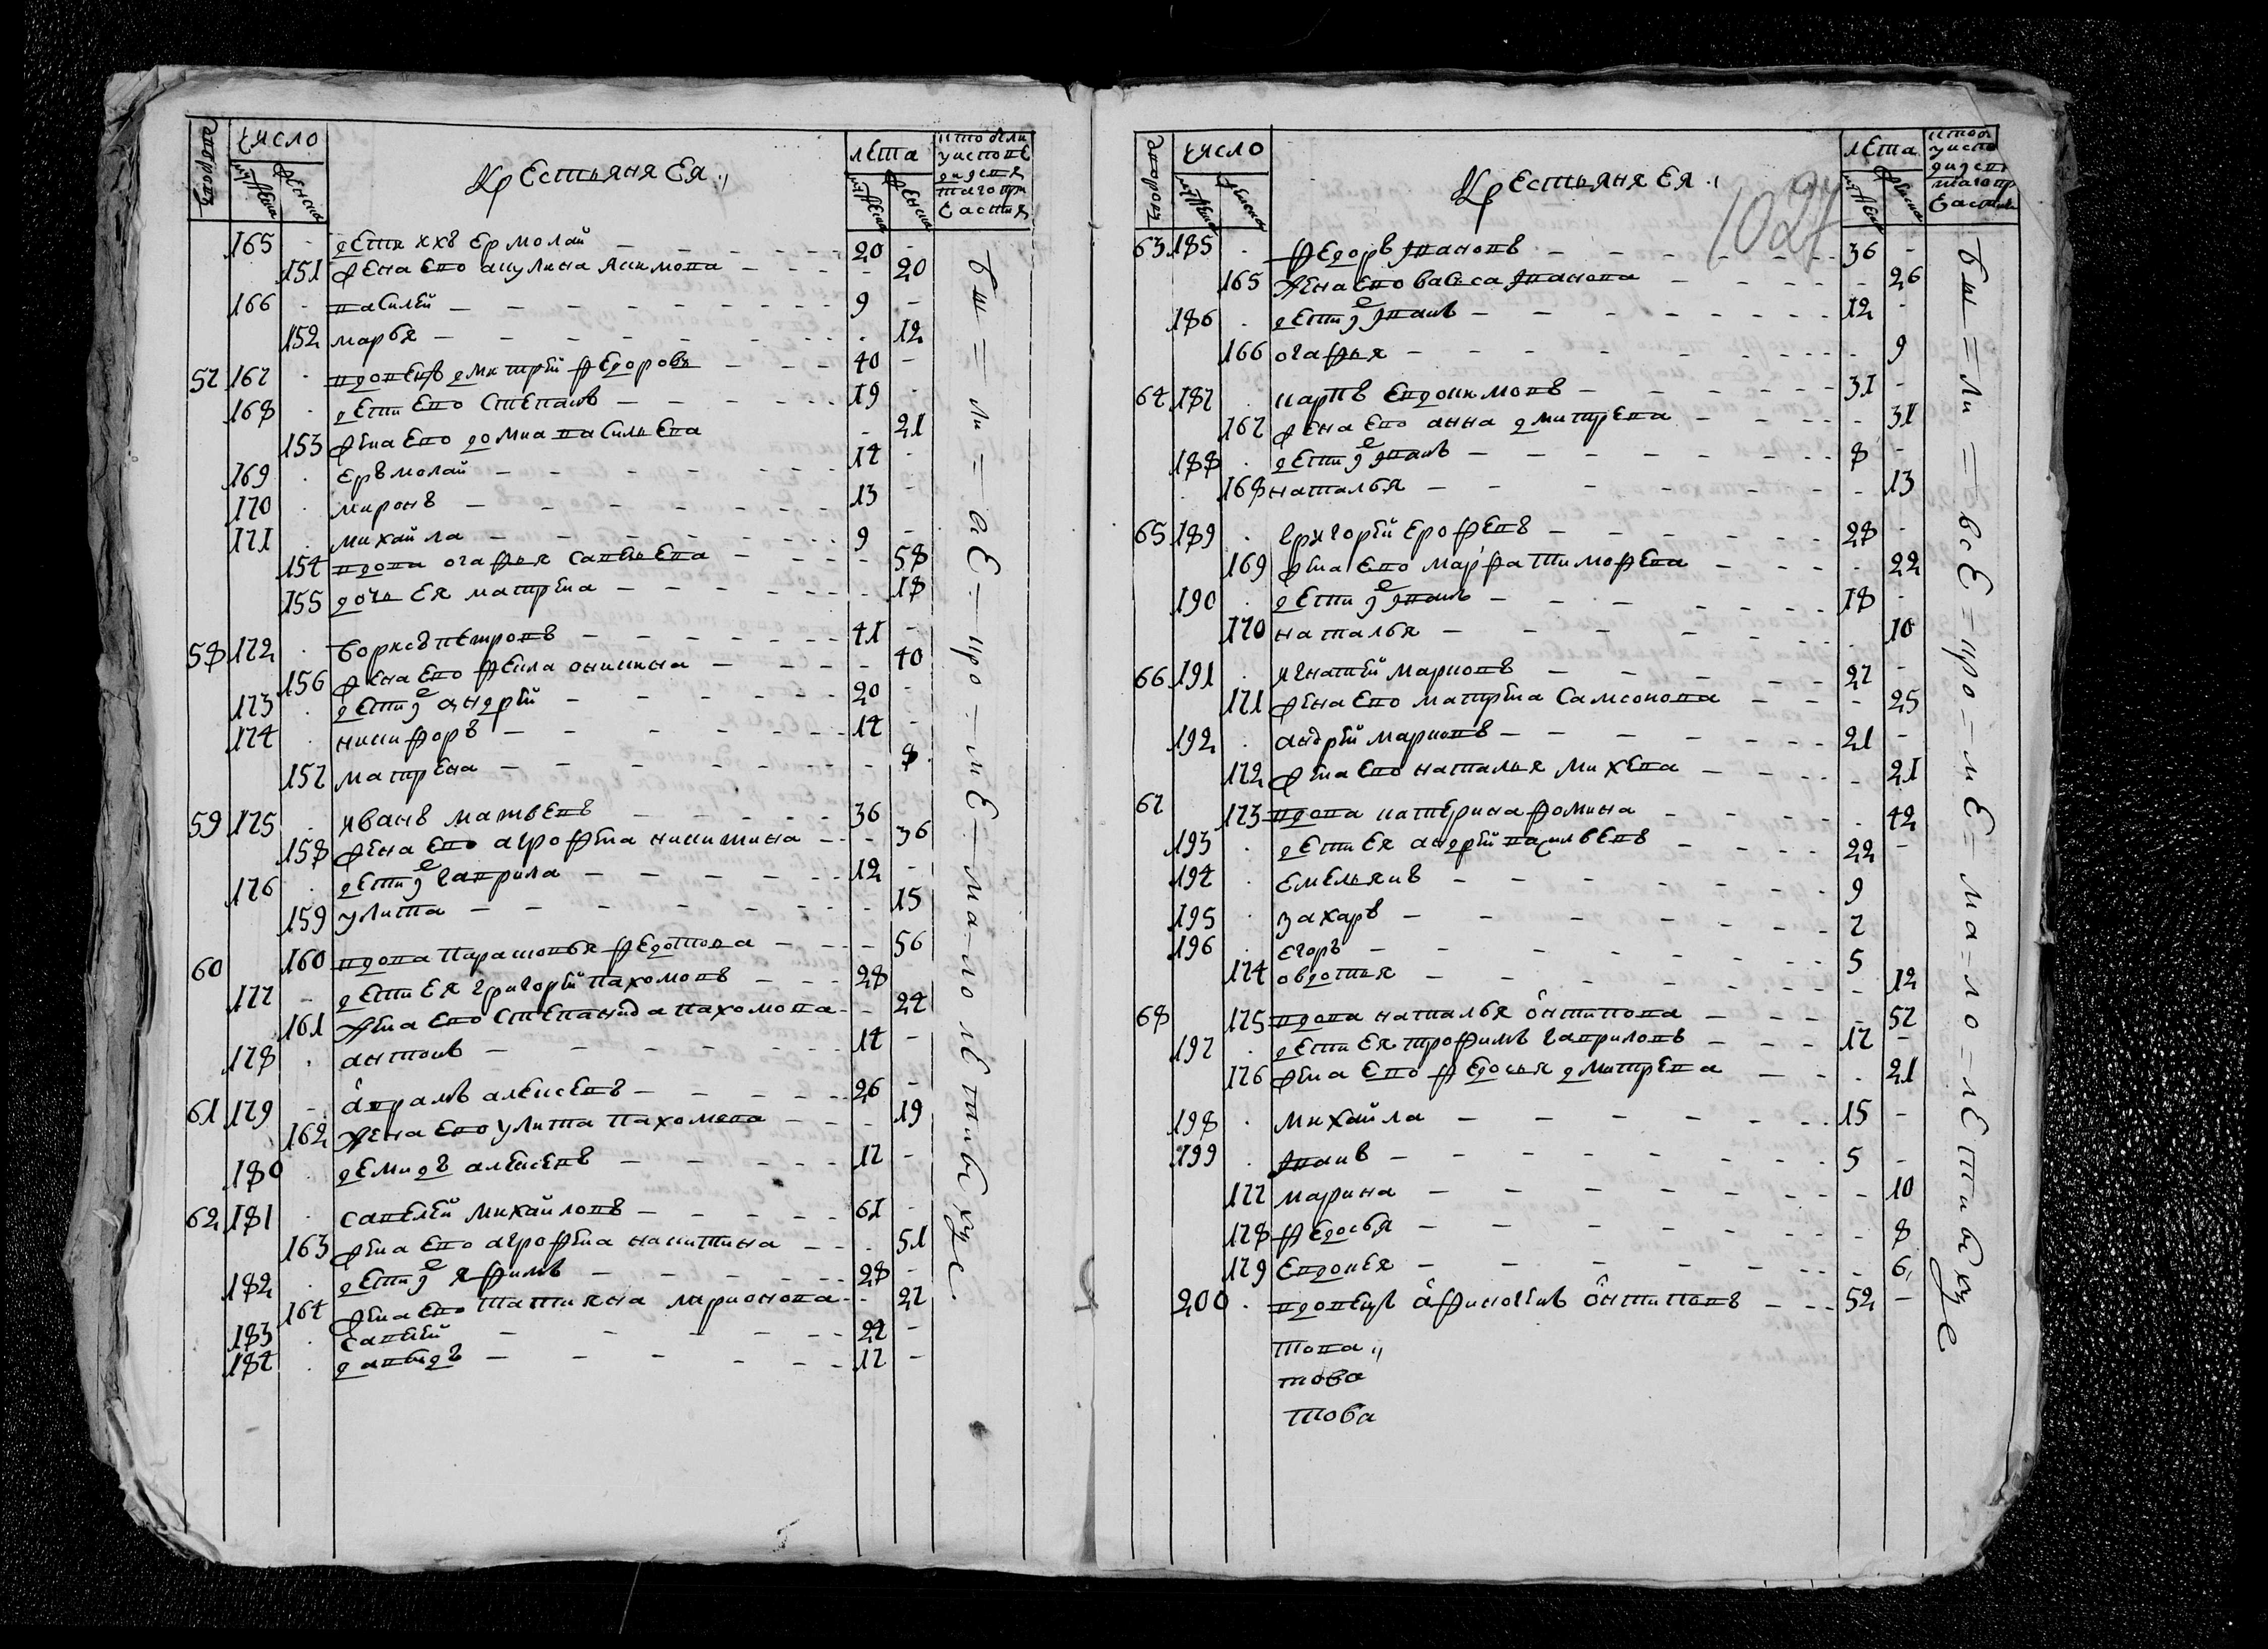 число
Крестьяня Ея
лета
мужеска
женска
165 дети ихъ Ермолай 20
151 жена Ево акулина якимова 20
166 василей 9
152 марья 12
57 167 вдовецъ дмитрей федоровъ 40
168 дети Ево Степанъ 19
153 жена Ево домна васильева 21
169 Ермолай 14
170 миронъ 13
171 михайла 9
154 вдова огафья савельева 58
155 дочь Ея матрена 18
58 172 борисъ петровъ 41
156 жена Ево фекла оникина 40
173 дети е андрей 20
174 никифоръ 14
157 матрена 8
59 175 иванъ матвеевъ 36
158 жена Ево агрофена никитина 36
176 дети е гаврила 12
159 улита 15
60 160 вдова парасковья федотова 56
177 дети Ея григорей пахомовъ 28
161 жена Ево Степанида пахомова 24
178 антонъ 14
61 179 аврамъ алексеевъ 26
162 жена Ево улита пахомова 19
180 демидъ алексеевъ 17
62 181 савелей михайловъ 61
163 жена Ево агрофена никитина 51
182 дети е яфимъ 28
164 жена Ево татияна ларионова 27
183 савелей 24
184 давыдъ 17
бы=ли=ис=по=ве=
102
число
Крестьяня Ея
лета
мужеска
женска
63 185 федоръ ивановъ 36
165 жена Ево васса иванова 26
186 дети е иванъ 12
166 огафья 9
64 187 карпъ Евдокимовъ 31
167 жена Ево анна дмитрева 31
188 дети е иванъ 8
168 наталья 13
65 189 григорей ерофеевъ 28
169 жена Ево марфа тимофеева 22
190 дети е иванъ 18
170 наталья 10
66 191 игнатей марковъ 27
171 жена Ево матрена Самсонова 25
192 андрей марковъ 21
172 жена Ево наталья михеева 21
67 173 вдова катерина фомина 42
193 дети Ея андрей васильевъ 22
194 Емельянъ 9
195 захаръ 7
196 Егоръ 5
174 овдотья 12
68 175 вдова наталья онтипова 57
197 дети Ея трофимъ гавриловъ 17
176 жена Ево федосья дмитрева 21
198 михайла 15
199 иванъ 5
177 марина 10
178 федосья 8
179 Евдокея 6
200 вдовецъ афиногенъ онтиповъ 52
това
това
това